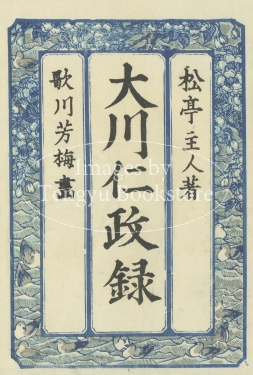 松亭主人著
大川仁政録
歌川芳梅畫
Images by
Tengyu Bookstore